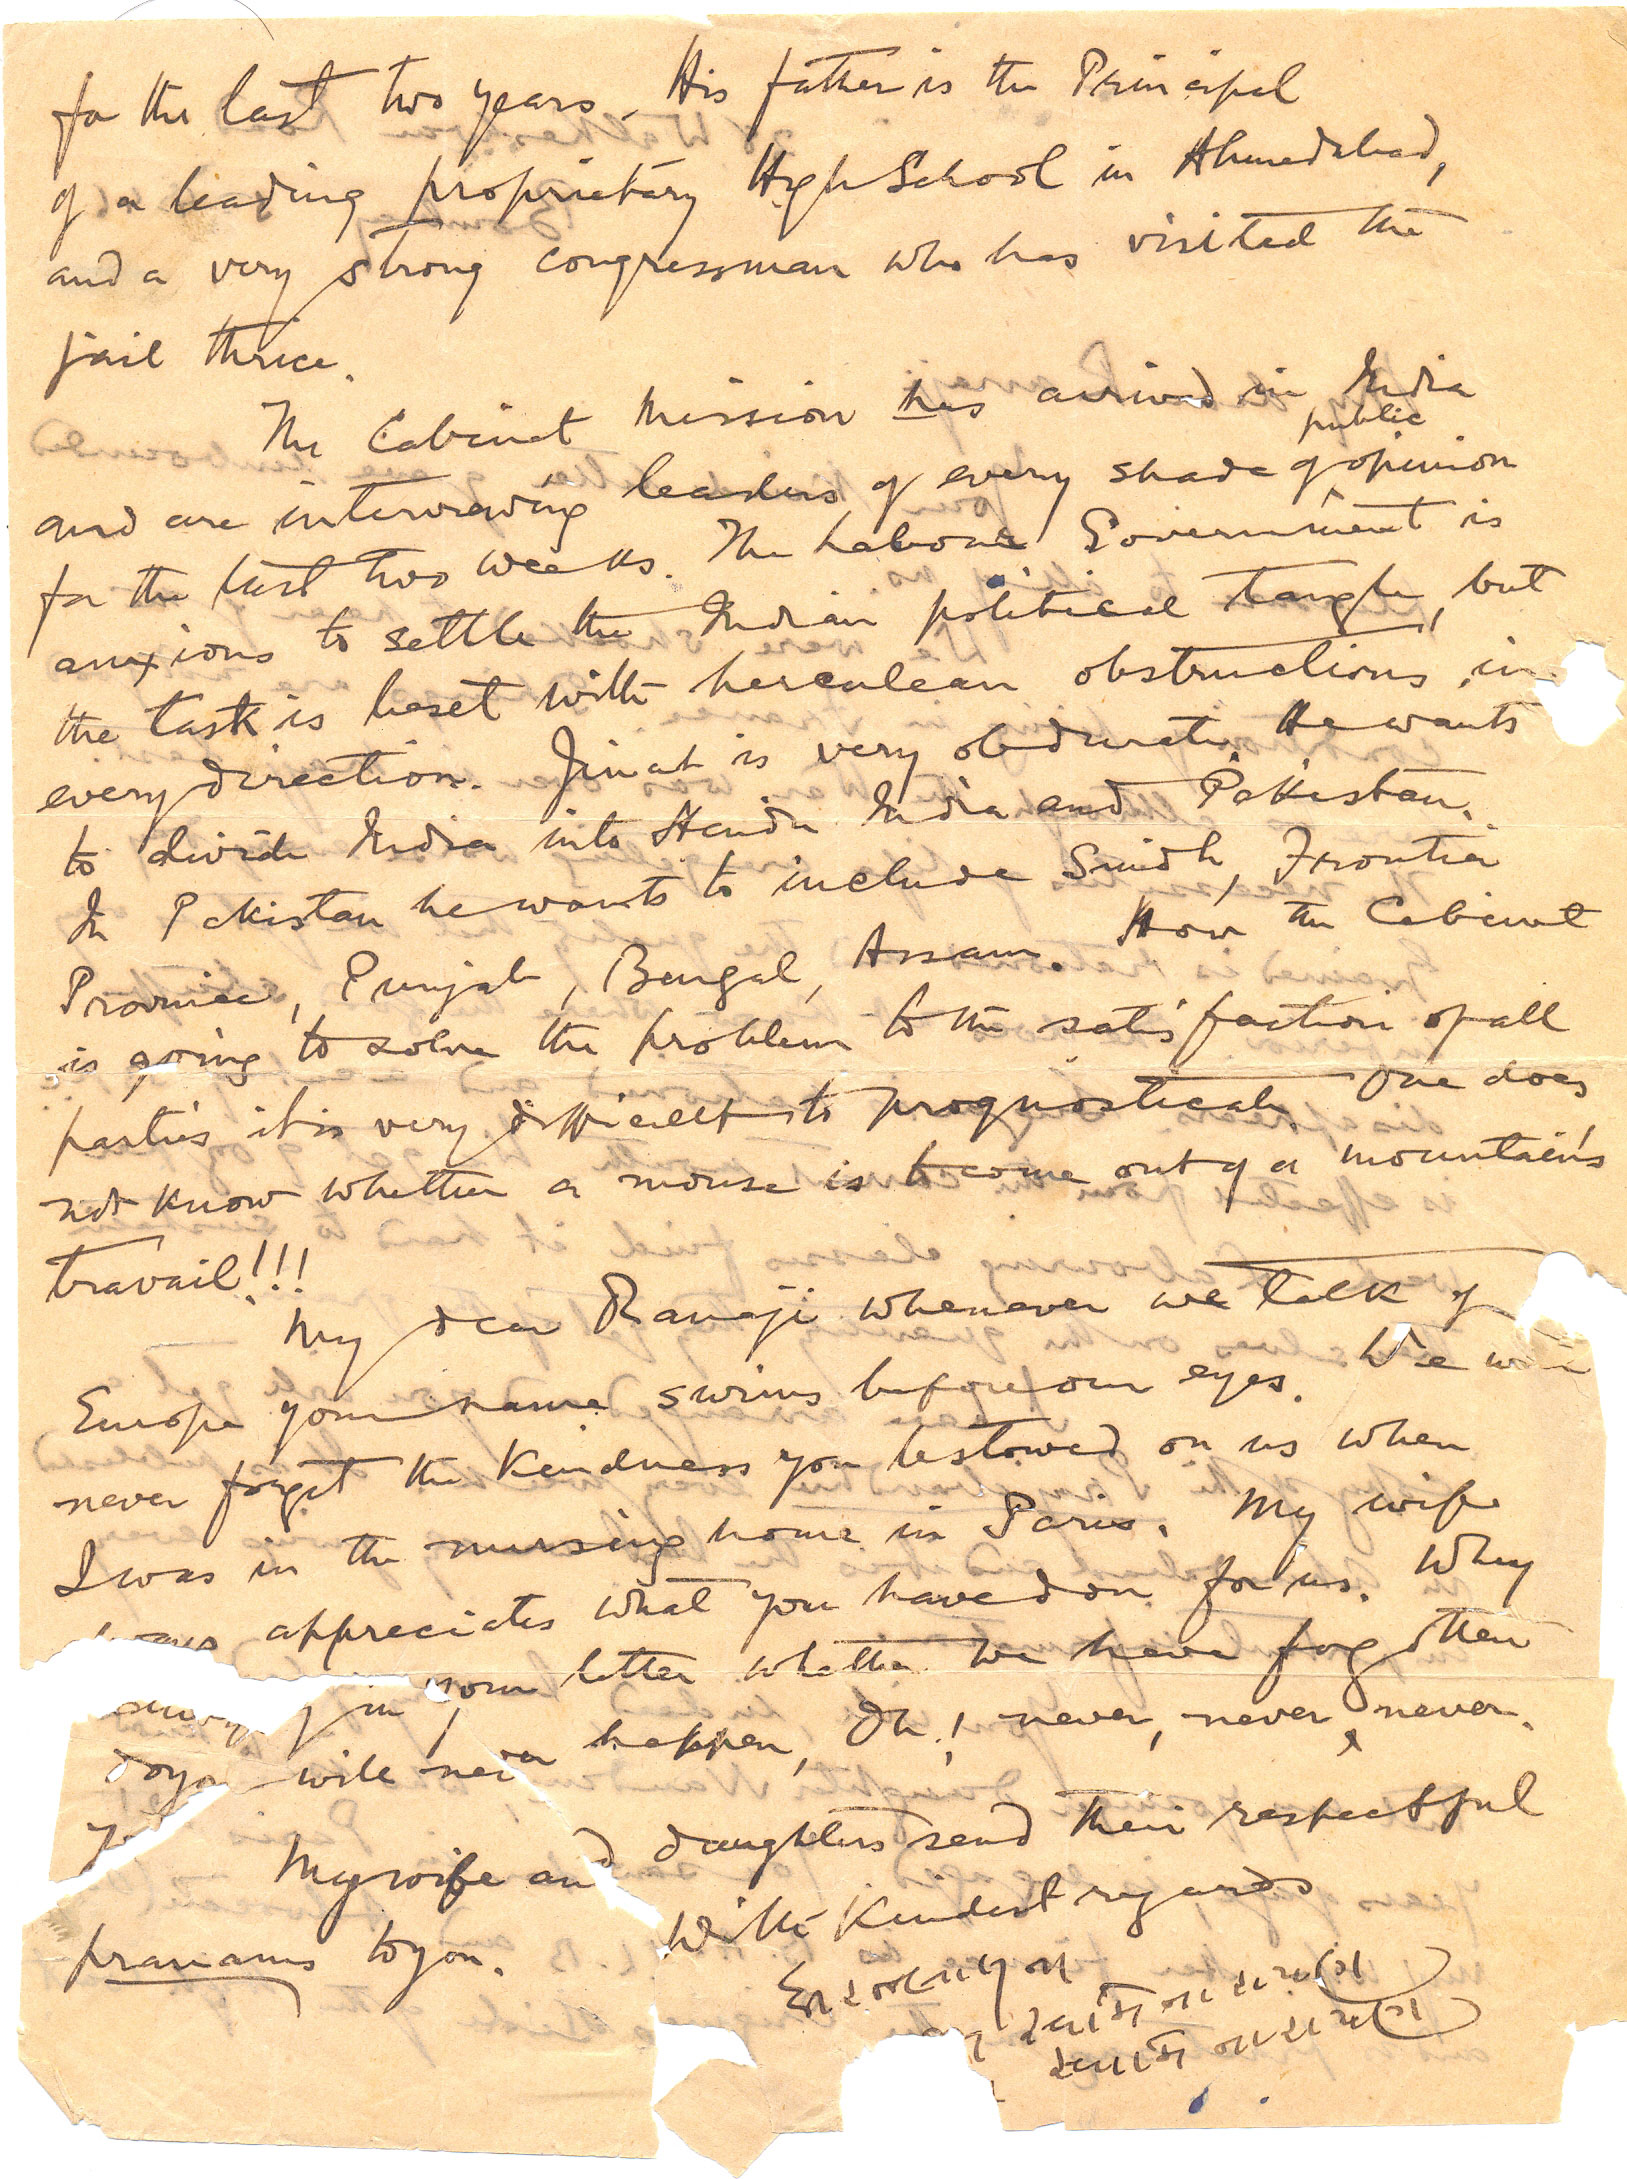 for the last two years. His father is the Principal
of a leading proprietary High School in Ahmedabad,
and a very strong congressman who has visited the
jail thrice.
The Cabinet Mission has arrived in India
public
and are interviewing leaders of every shade of opinion
for the last two weeks. The Labour Government is
anxious to settle the Indian political tangle, but
the task is beset with herculean obstructions in
every direction. Jinah is very obdurate. He wants
to divide India into Hindu India and Pakistan.
In Pakistan he wants to include Sindh, Frontier
Province, Punjab, Bengal, Assam. How the Cabinet
is going to solve the problem to the satisfaction of all
parties it is very difficult to prognosticate One does
not know whether a mouse is to come out of a mountain's
travail!!!
My dear Ranaji whenever we talk of
Europe your name swims before our eyes. We will
never forget the kindness you bestowed on us when
I was in the nursing home in Paris. My wife
appreciates what you have don for us. Why
in your letter whether we have forgotten
will never happen, Oh! never, never, never.
My wife and daughters send their respectful
pranams to you. With kindest regards